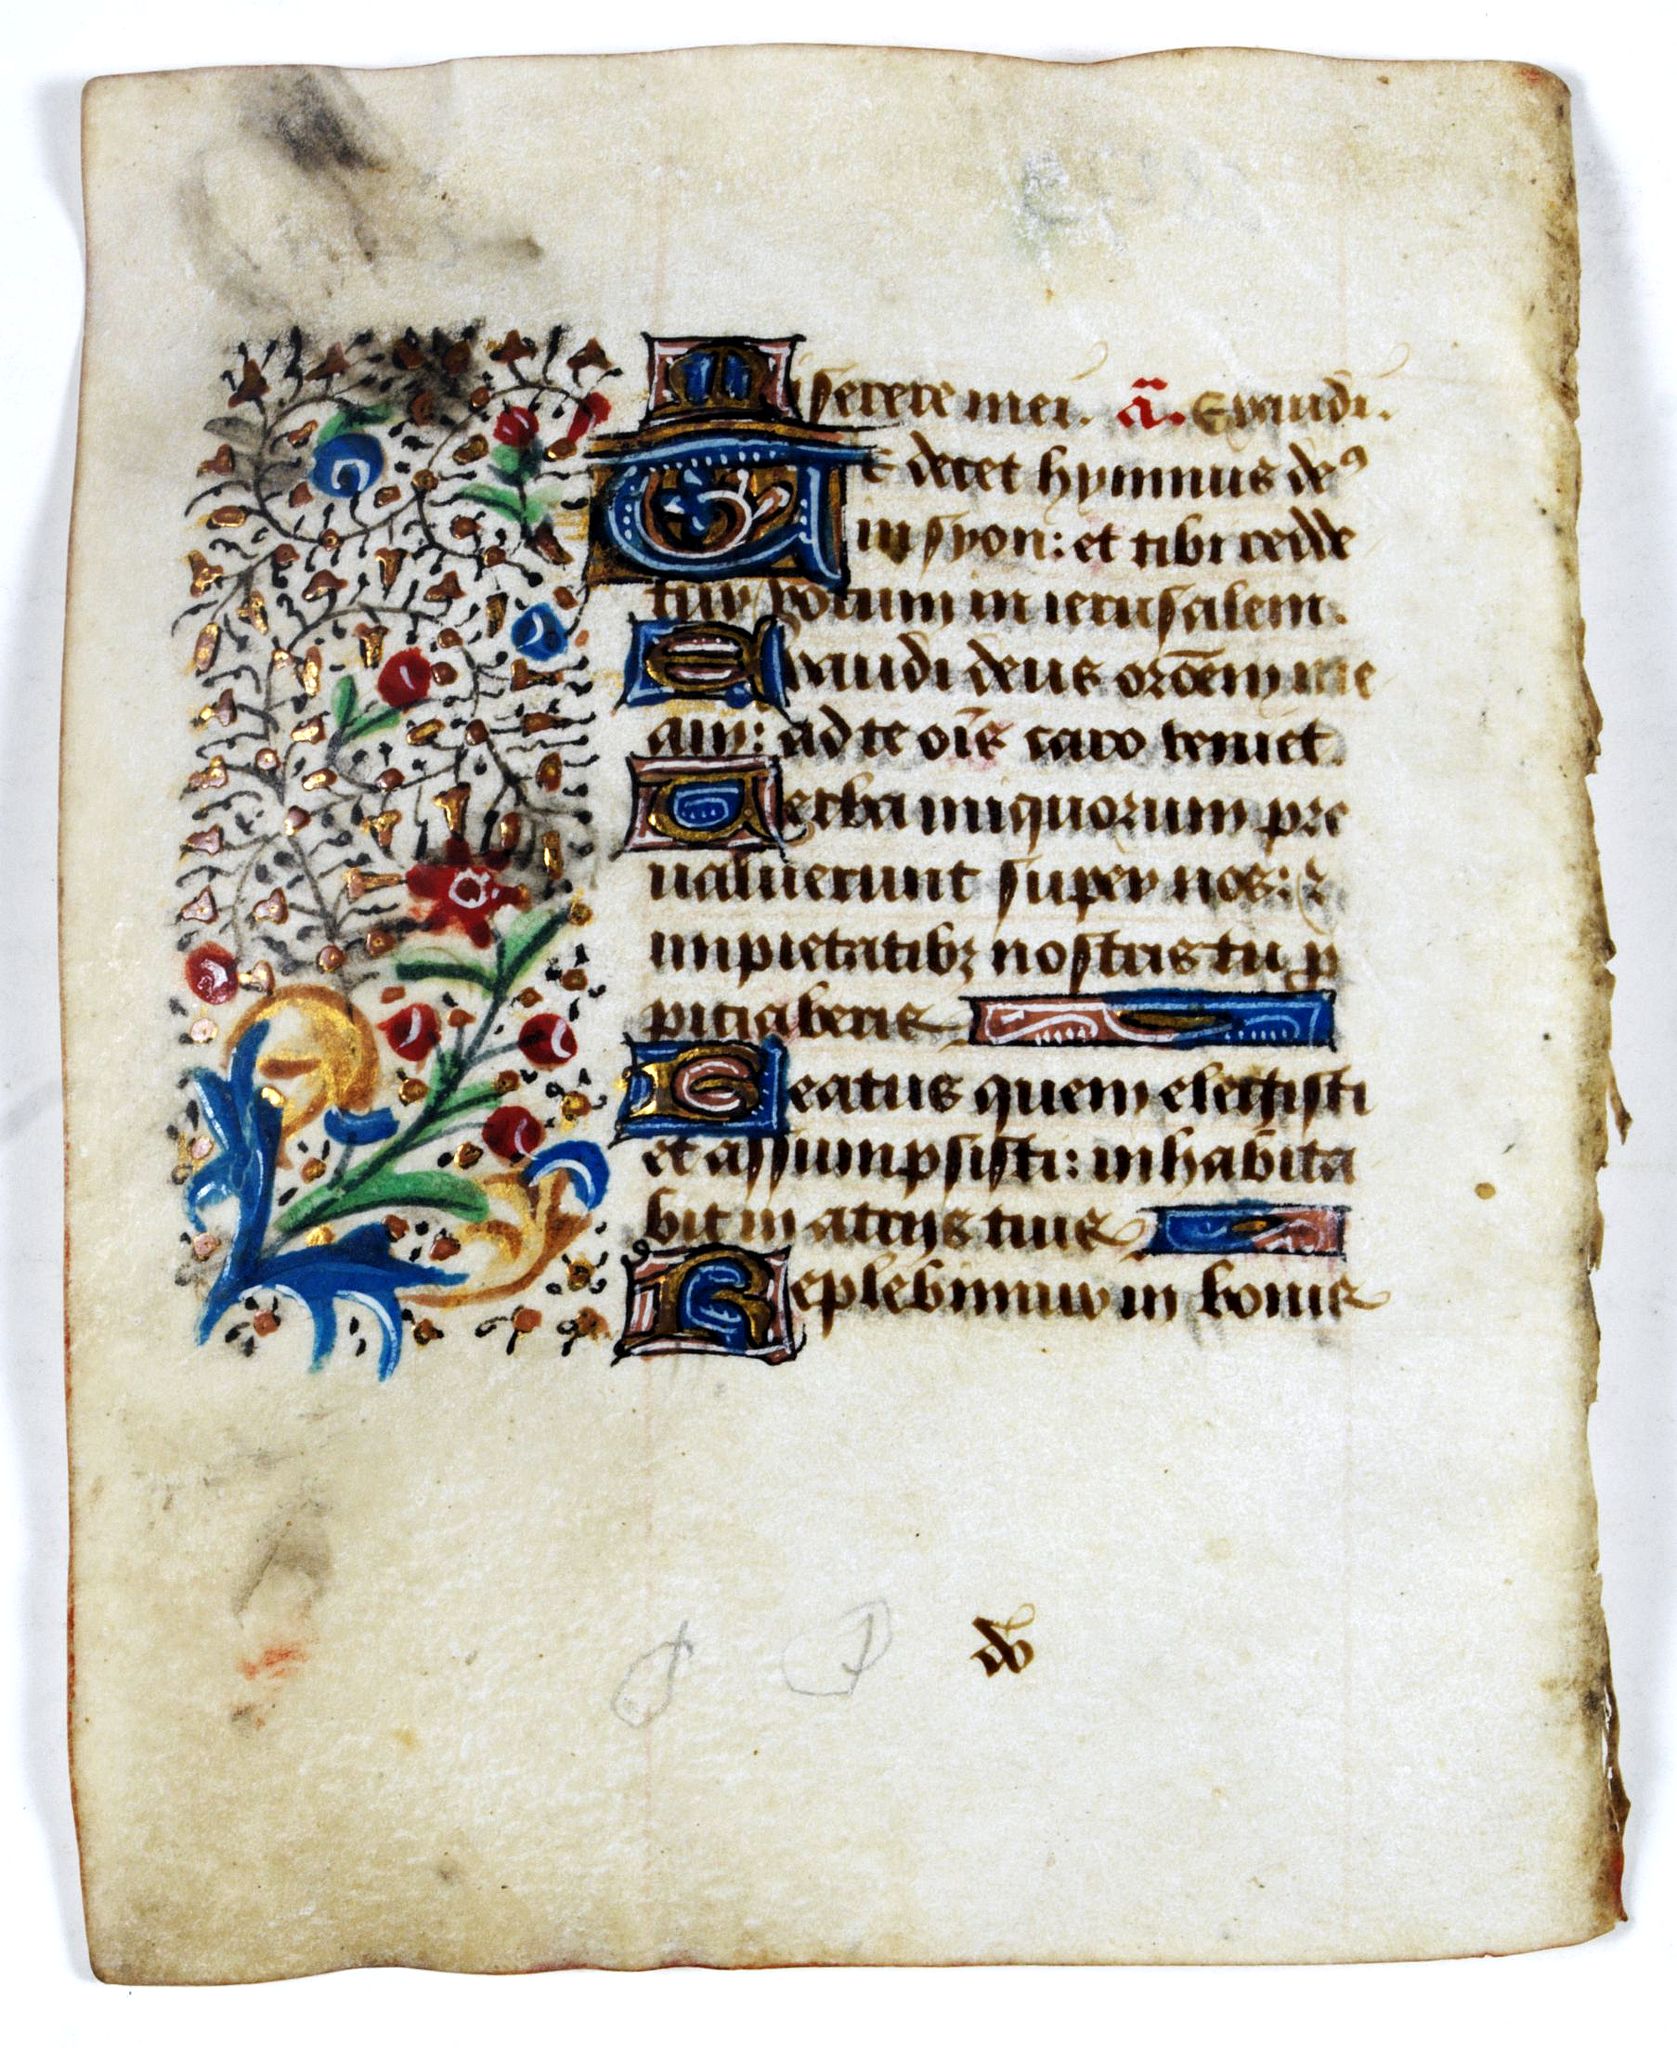 Miserere mei. ã. Exaudi.
Te decet hymnus de⁹
in syon: et tibi redde
tur votum in ierusalem.
Exaudi deus orōem me
am: ad te oīs caro veniet.
Verba iniquorum pre
ualuerunt super nos: ⁊
impietatibꝫ nostris tu ꝓ
piciaberis
Beatus quem elegisti
et assumpsisti: inhabita
bit in atrijs tuis
Replebimur in bonis